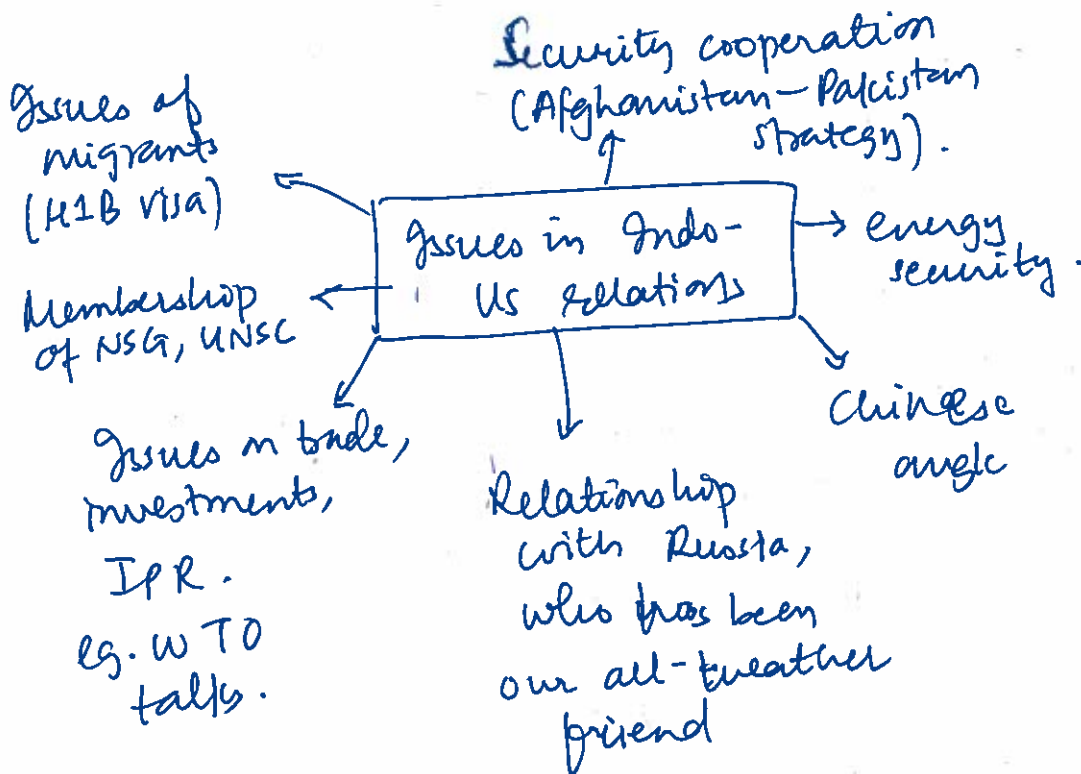 Security cooperation
(Afghanistan-Pakistan
strategy).
Issues of
migrants
(H1B visa)
Issues in Indo-
US relations
energy
security.
Membership
of NSG, UNSC
Chinese
angle
Issues on trade,
investments,
IPR.
eg. WTO
talks.
Relationship
with Russia,
who has been
our all-weather
friend